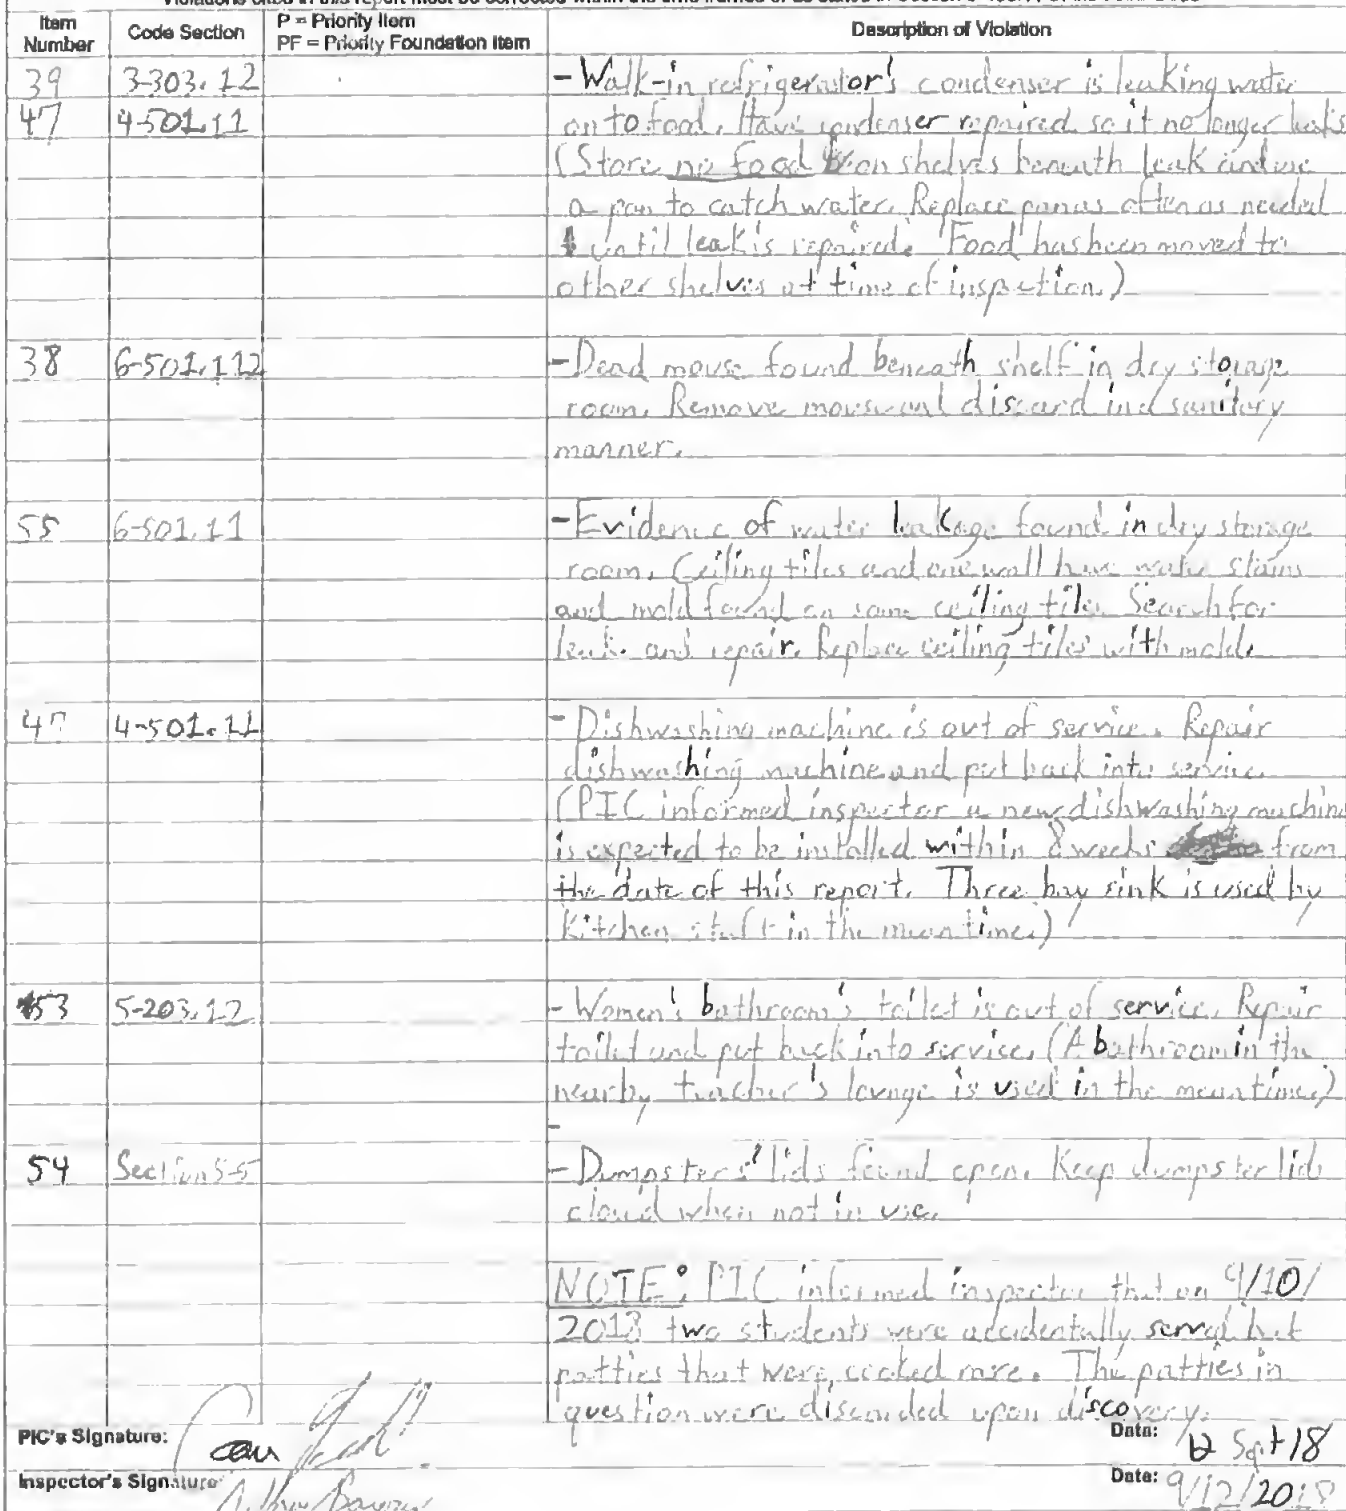 Item Number Code Section P = Priority Item Description of Violation
PF = Priority Foundation Item
39 3-303.12 - Walk-in refrigerator's condenser is leaking water
47 4-501.11 onto food. Have condenser repaired so it no longer leaks
(Store no food on shelves beneath leak and use
a pan to catch water. Replace pan as often as needed
until leak is repaired. Food has been moved to
other shelves at time of inspection.)
38 6-501.112 - Dead mouse found beneath shelf in dry storage
room. Remove mouse and discard in a sanitary
manner.
55 6-501.11 - Evidence of water leakage found in dry storage
room. Ceiling tiles and one wall have water stains
and mold found on some ceiling tiles. Search for
leak and repair. Replace ceiling tiles with mold.
47 4-501.11 - Dishwashing machine is out of service. Repair
dishwashing machine and put back into service.
(PIC informed inspector a new dishwashing machine
is expected to be installed within 8 weeks from
the date of this report. Three bay sink is used by
kitchen staff in the meantime.)
53 5-203.12 - Women's bathroom's toilet is out of service. Repair
toilet and put back into service. (A bathroom in the
nearby teacher's lounge is used in the meantime.)
54 Section 5-5 - Dumpsters' lids found open. Keep dumpster lids
closed when not in use.
NOTE: PIC informed inspector that on 9/10/
2018 two students were accidentally served
patties that were cooked rare. The patties in
question were discarded upon discovery.
PIC's Signature: Date: 12 Sept 18
Inspector's Signature: Date: 9/12/2018